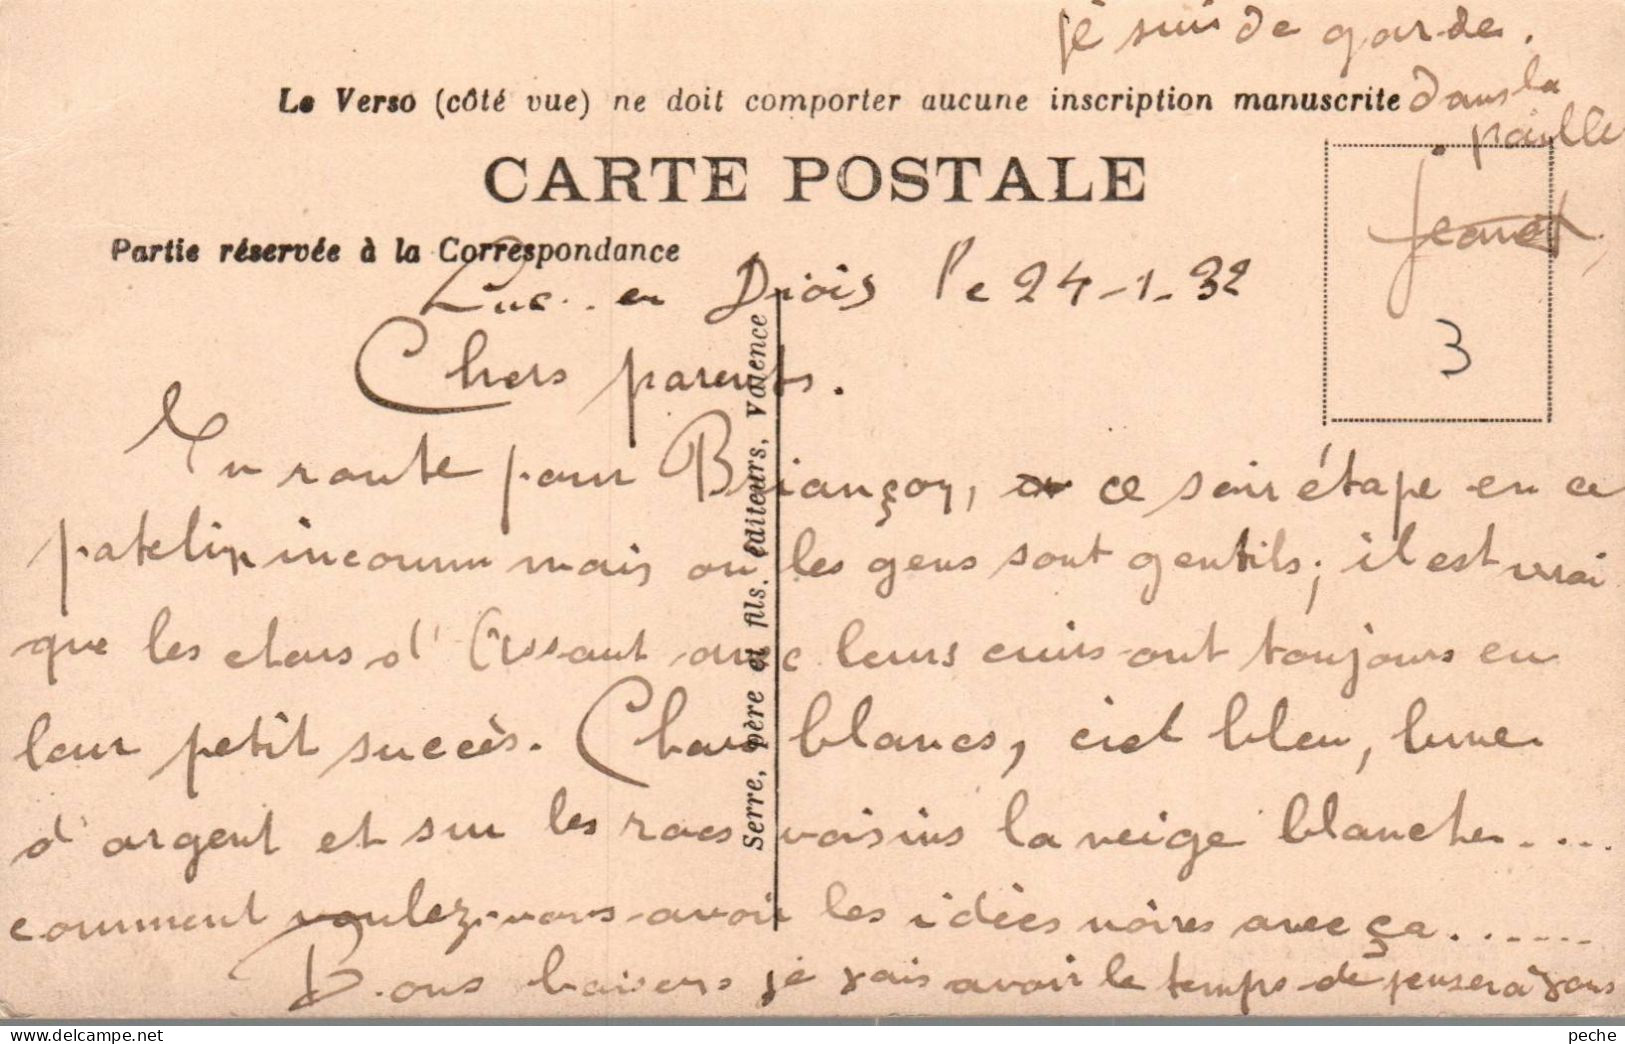 je suis de garde.
Le Verso (côté vue) ne doit comporter aucune inscription manuscrite
dans la
paille
CARTE POSTALE
Partie réservée à la Correspondance
Luc.. en Diois le 24-1-32
3
Chers parents.
En route pour Briançon, ce soir étape en ce
patelin inconnu mais ou les gens sont gentils; il est vrai
que les chars d'Assaut avec leurs cuirs ont toujours eu
leur petit succès. Chars blancs, ciel bleu, lune
d'argent et sur les rocs voisins la neige blanche....
comment voulez-vous avoir les idées noires avec ça.......
Bons baisers je vais avoir le temps de penser à vous
Jeanot
Serre, père et fils. éditeurs, Valence
peche